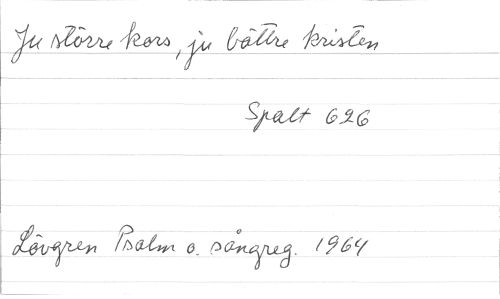 Ju större kors, ju bättre kristen
Spalt 626
Lövgren Psalm o. sångreg. 1964